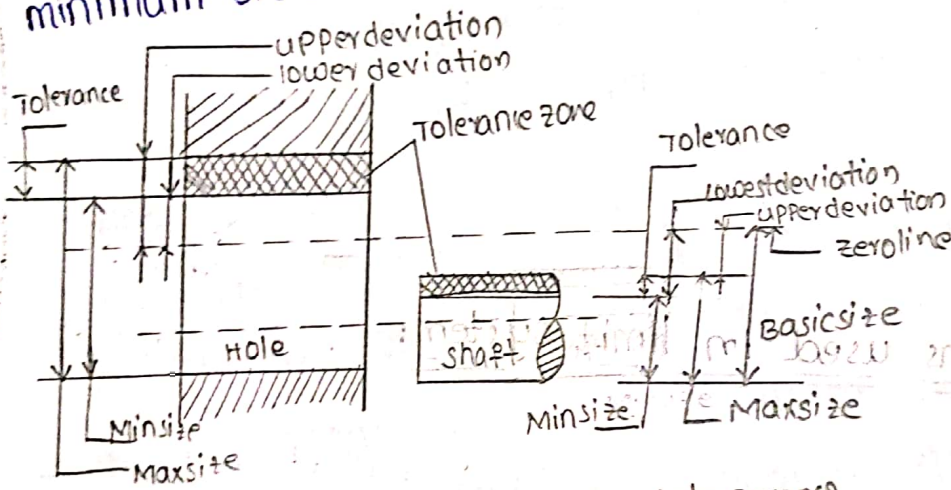 minimum
upperdeviation
lower deviation
Tolerance
Tolerance zone
Tolerance
lowestdeviation
upperdeviation
zeroline
Basicsize
Hole
shaft
Minsize
Maxsize
Minsize
Maxsize